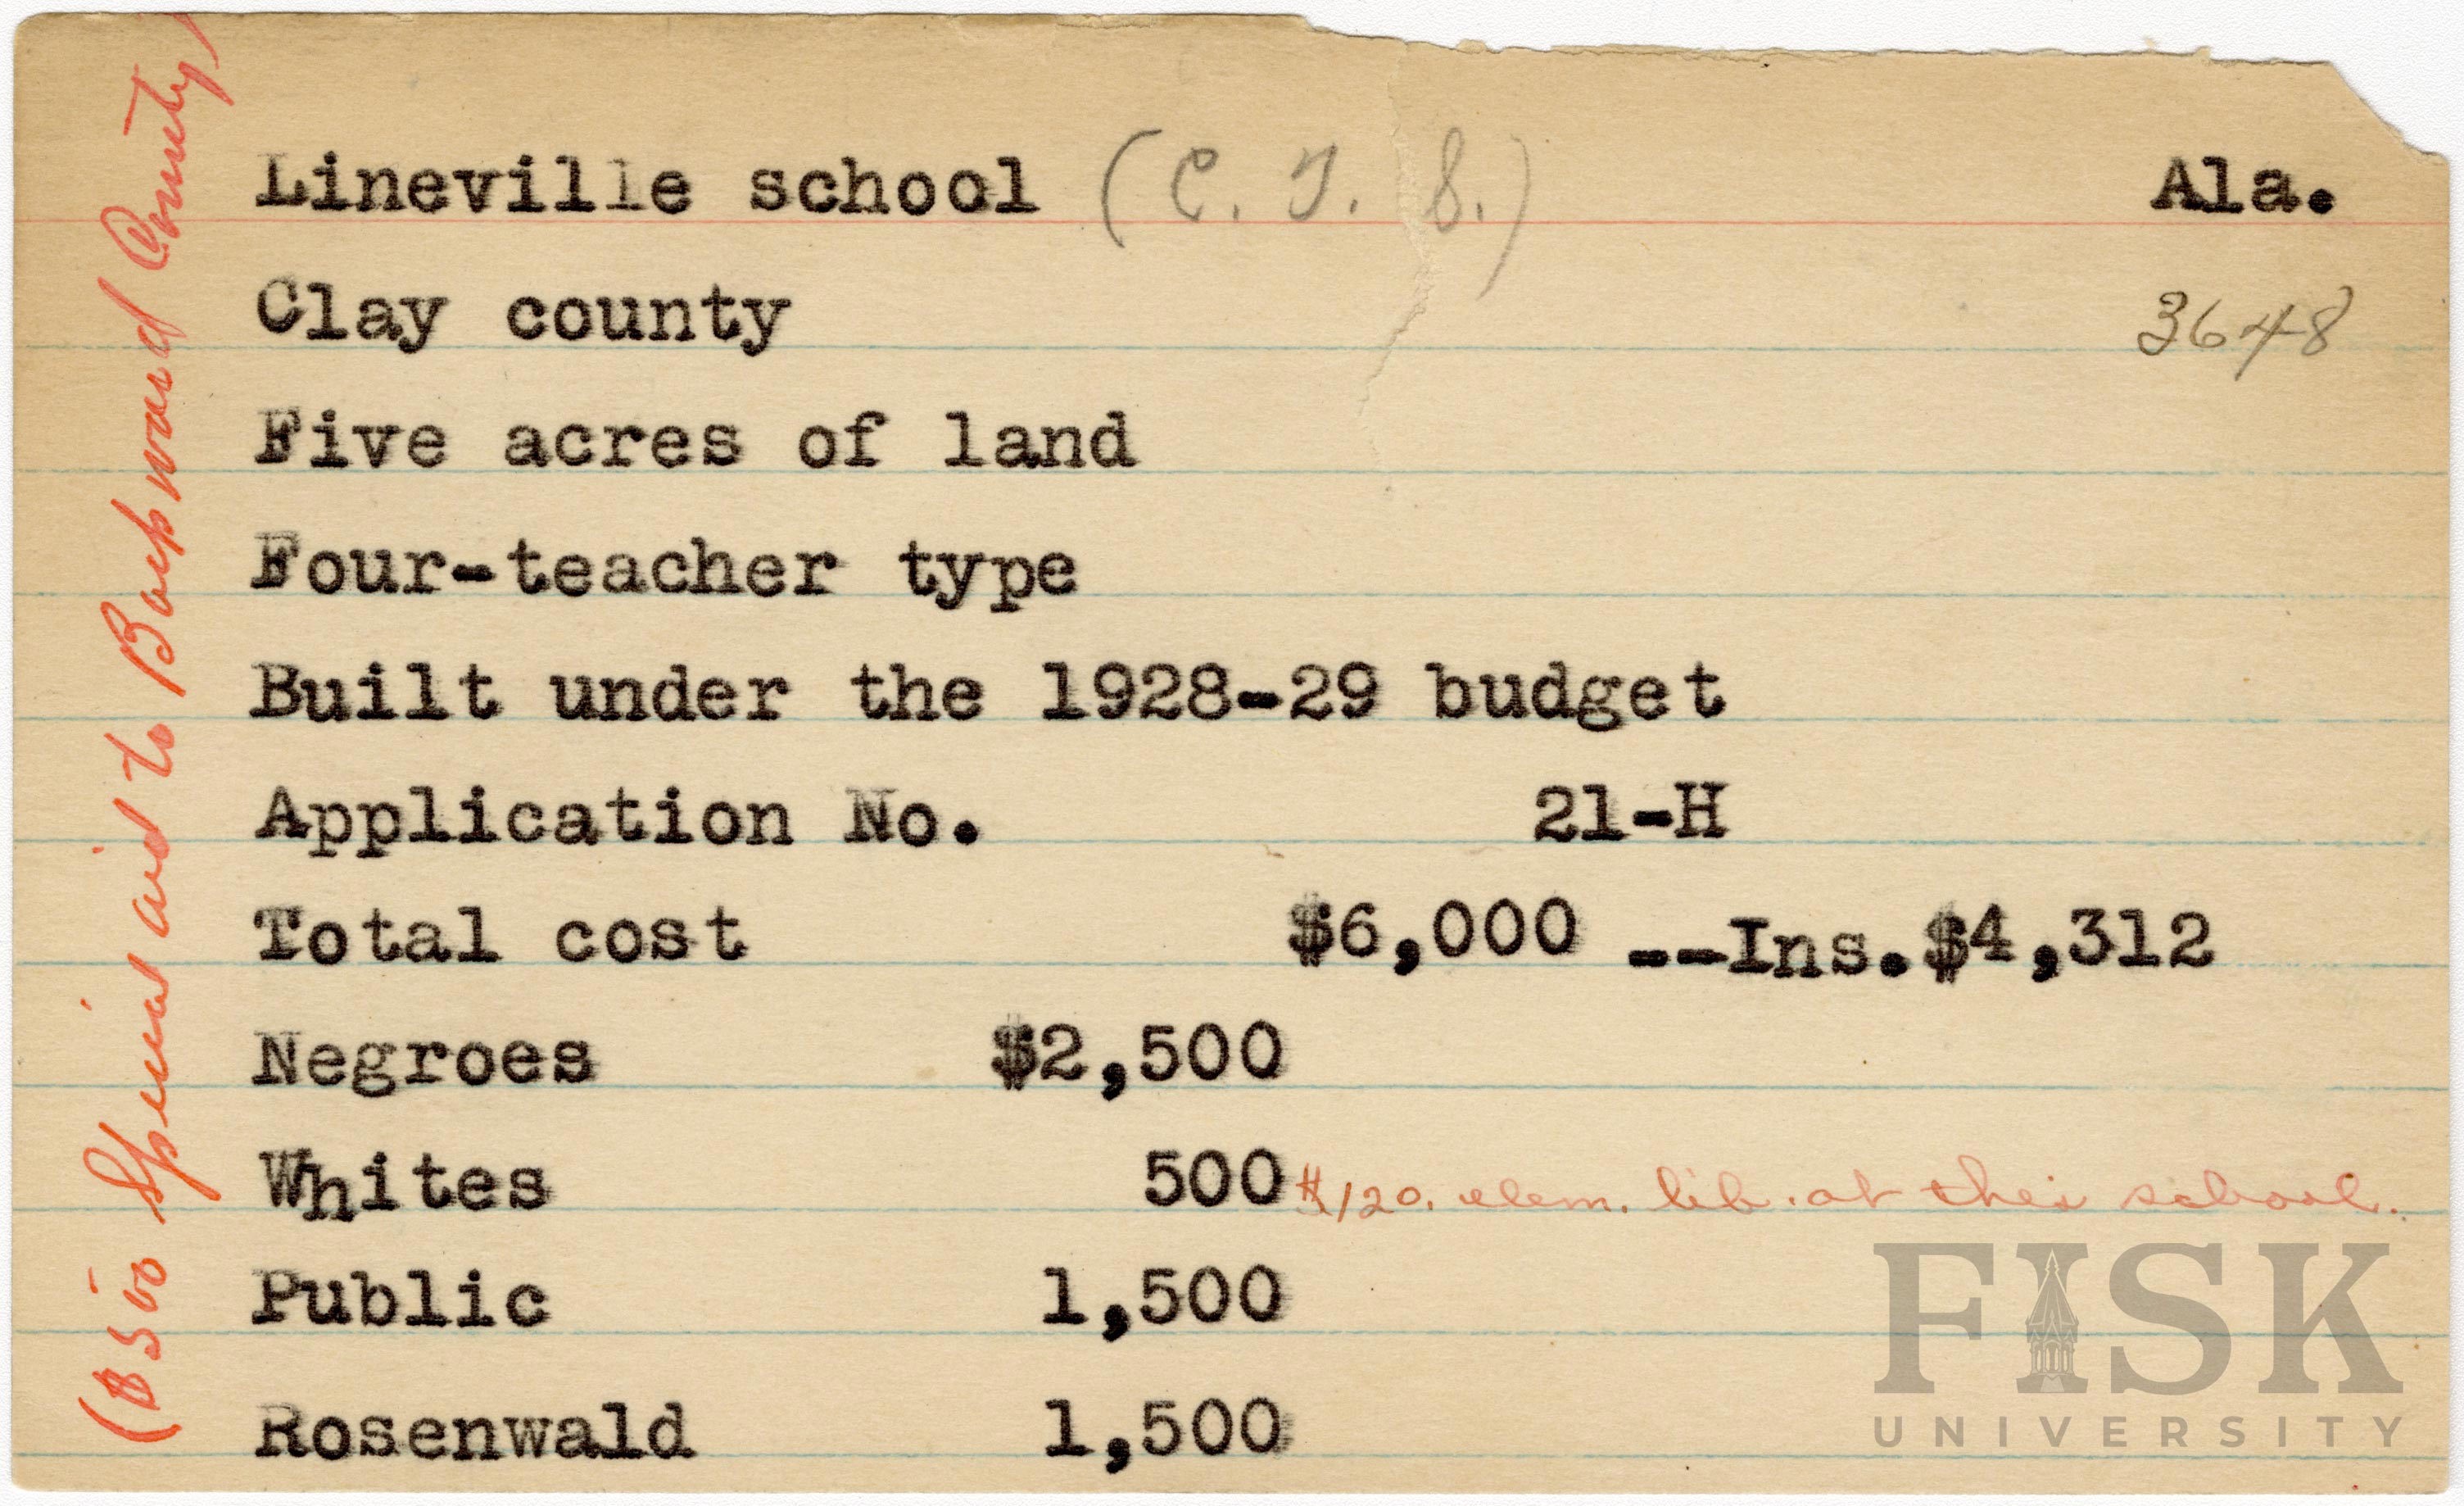 Lineville school (C. T. S.) Ala.
Clay county 3648
Five acres of land
Four-teacher type
Built under the 1928-29 budget
Application No. 21-H
Total cost $6,000 --Ins.$4,312
Negroes $2,500
Whites 500 $120. elem. lib. at this school.
Public 1,500
Rosenwald 1,500
($500 Special aid to Backward County)
FISK
UNIVERSITY